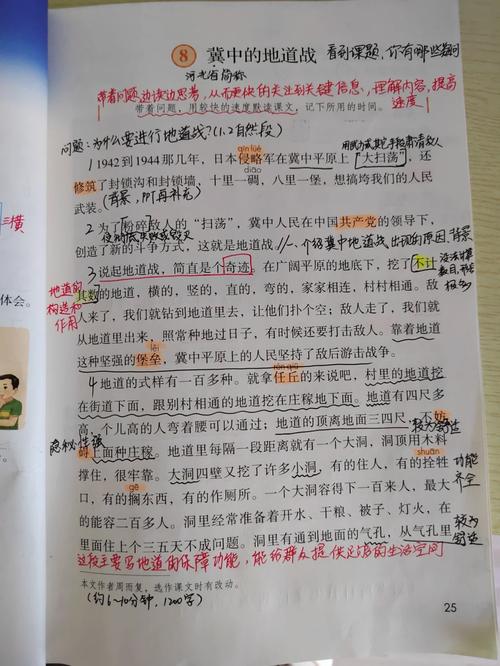 8 冀中的地道战 看到课题,你有哪些疑问
河北省简称
带着问题边读边思考,从而更快的关注到关键信息,理解内容,提高速度
带着问题,用较快的速度默读课文,记下所用的时间。
问题:为什么要进行地道战?(1.2自然段)
qīn lüè
1 1942到1944那几年,日本侵略军在冀中平原上“大扫荡”,还
diāo
修筑了封锁沟和封锁墙,十里一碉,八里一堡,想搞垮我们的人民
武装。(背景,可再补充)
2 为了粉碎敌人的“扫荡”,冀中人民在中国共产党的领导下,
创造了新的斗争方式,这就是地道战。介绍冀中地道战出现的原因、背景
3 说起地道战,简直是个奇迹。在广阔平原的地底下,挖了不计
其数的地道,横的,竖的,直的,弯的,家家相连,村村相通。敌
地道的构造和作用
人来了,我们就钻到地道里去,让他们扑个空;敌人走了,我们就
从地道里出来,照常种地过日子,有时候还要打击敌人。靠着地道
lěi
这种坚强的堡垒,冀中平原上的人民坚持了敌后游击战争。
4 地道的式样有一百多种。就拿任丘的来说吧,村里的地道挖
在街道下面,跟别村相通的地道挖在庄稼地下面。地道有四尺多
高,个儿高的人弯着腰可以通过;地道的顶离地面三四尺,不妨
碍上面种庄稼。地道里每隔一段距离就有一个大洞,洞顶用木料
shuān
撑住,很牢靠。大洞四壁又挖了许多小洞,有的住人,有的拴牲
功能齐全
gē
口,有的搁东西,有的作厕所。一个大洞容得下一百来人,最大
的能容二百多人。洞里经常准备着开水、干粮、被子、灯火,在
里面住上个三五天不成问题。洞里有通到地面的气孔,从气孔里
这段主要写地道的保障功能,能给群众提供足够的生活空间
本文作者周而复,选作课文时有改动。
(约6~10分钟,1200字)
25
三横
体会。